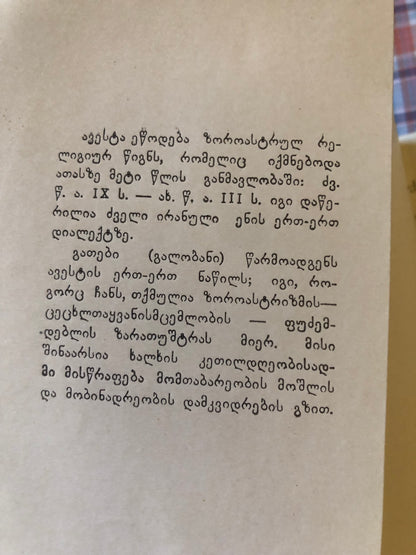 ავესტა ეწოდება ზოროასტრულ რე-
ლიგიურ წიგნს, რომელიც იქმნებოდა
ათასზე მეტი წლის განმავლობაში: ძვ.
წ. ა. IX ს. — ახ. წ. ა. III ს. იგი დაწე-
რილია ძველი ირანული ენის ერთ-ერთ
დიალექტზე.
გათები (გალობანი) წარმოადგენს
ავესტის ერთ-ერთ ნაწილს; იგი, რო-
გორც ჩანს, თქმულია ზოროასტრიზმის—
ცეცხლთაყვანისმცემლობის — ფუძემ-
დებლის ზარათუშტრას მიერ. მისი
შინაარსია ხალხის კეთილდღეობისად-
მი მისწრაფება მომთაბარეობის მოშლის
და მობინადრეობის დამკვიდრების გზით.